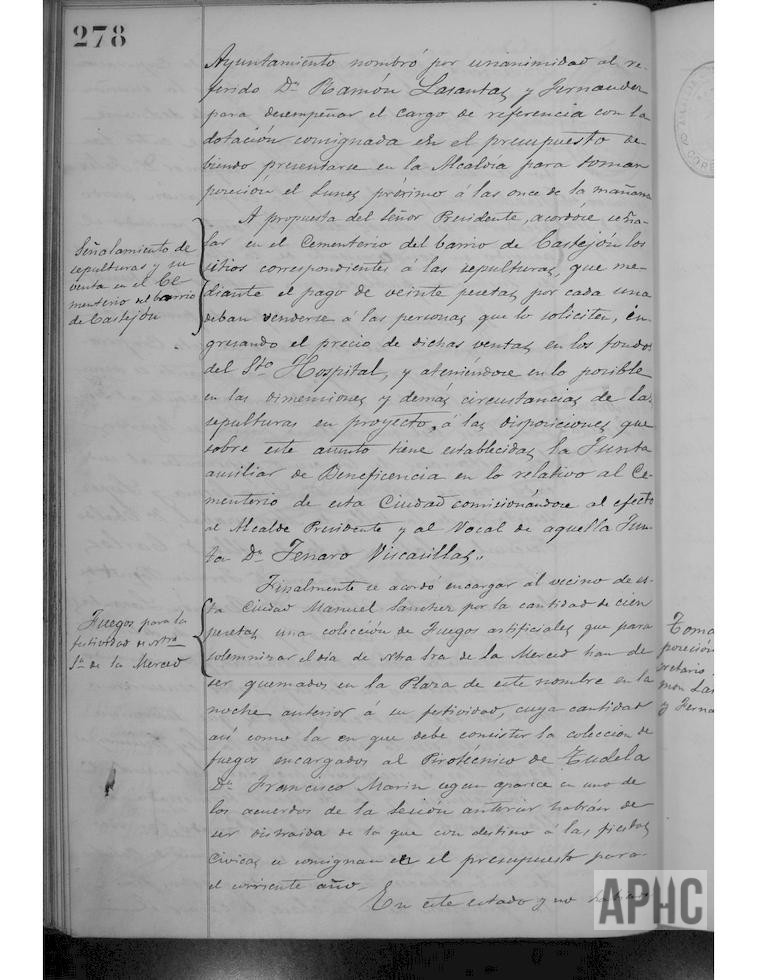 278
Ayuntamiento nombró por unanimidad al re-
ferido Dn Ramón Lasantas y Fernandez
para desempeñar el cargo de referencia con la
dotación consignada en el presupuesto de-
biendo presentarse en la Alcaldía para tomar
posesión el Lunes próximo á las once de la mañana
Señalamiento de
sepulturas y su
venta en el Ce-
menterio del barrio
de Castejón
A propuesta del Señor Presidente, acordóse seña-
lar en el Cementerio del barrio de Castejón los
sitios correspondientes á las sepulturas, que me-
diante el pago de veinte pesetas por cada una
deban venderse á las personas que lo soliciten, in-
gresando el precio de dichas ventas en los fondos
del Sto Hospital, y ateniéndose en lo posible
en las dimensiones y demás circunstancias de las
sepulturas en proyecto, á las disposiciones que
sobre este asunto tiene establecidas la Junta
auxiliar de Beneficencia en lo relativo al Ce-
menterio de esta Ciudad comisionándose al efecto
al Alcalde Presidente y al Vocal de aquella Jun-
ta Dn Jenaro Viscasillas.
Fuegos para la
festividad de Ntra
Sa de la Merced
Finalmente se acordó encargar al vecino de es-
ta Ciudad Manuel Sanchez por la cantidad de cien
pesetas una colección de Fuegos artificiales que para
solemnizar el dia de Ntra Sra de la Merced han de
ser quemados en la Plaza de este nombre en la
noche anterior á su festividad, cuya cantidad
asi como la en que debe consistir la colección de
fuegos encargados al Pirotécnico de Tudela
Dn Francisco Marin segun aparece en uno de
los acuerdos de la Sesión anterior habrán de
ser distraida de la que con destino á las fiestas
Civicas se consignan en el presupuesto para
el corriente año.
En este estado y no habiendo
Toma
posesión
cretario
mon Las
y Ferna
APHC